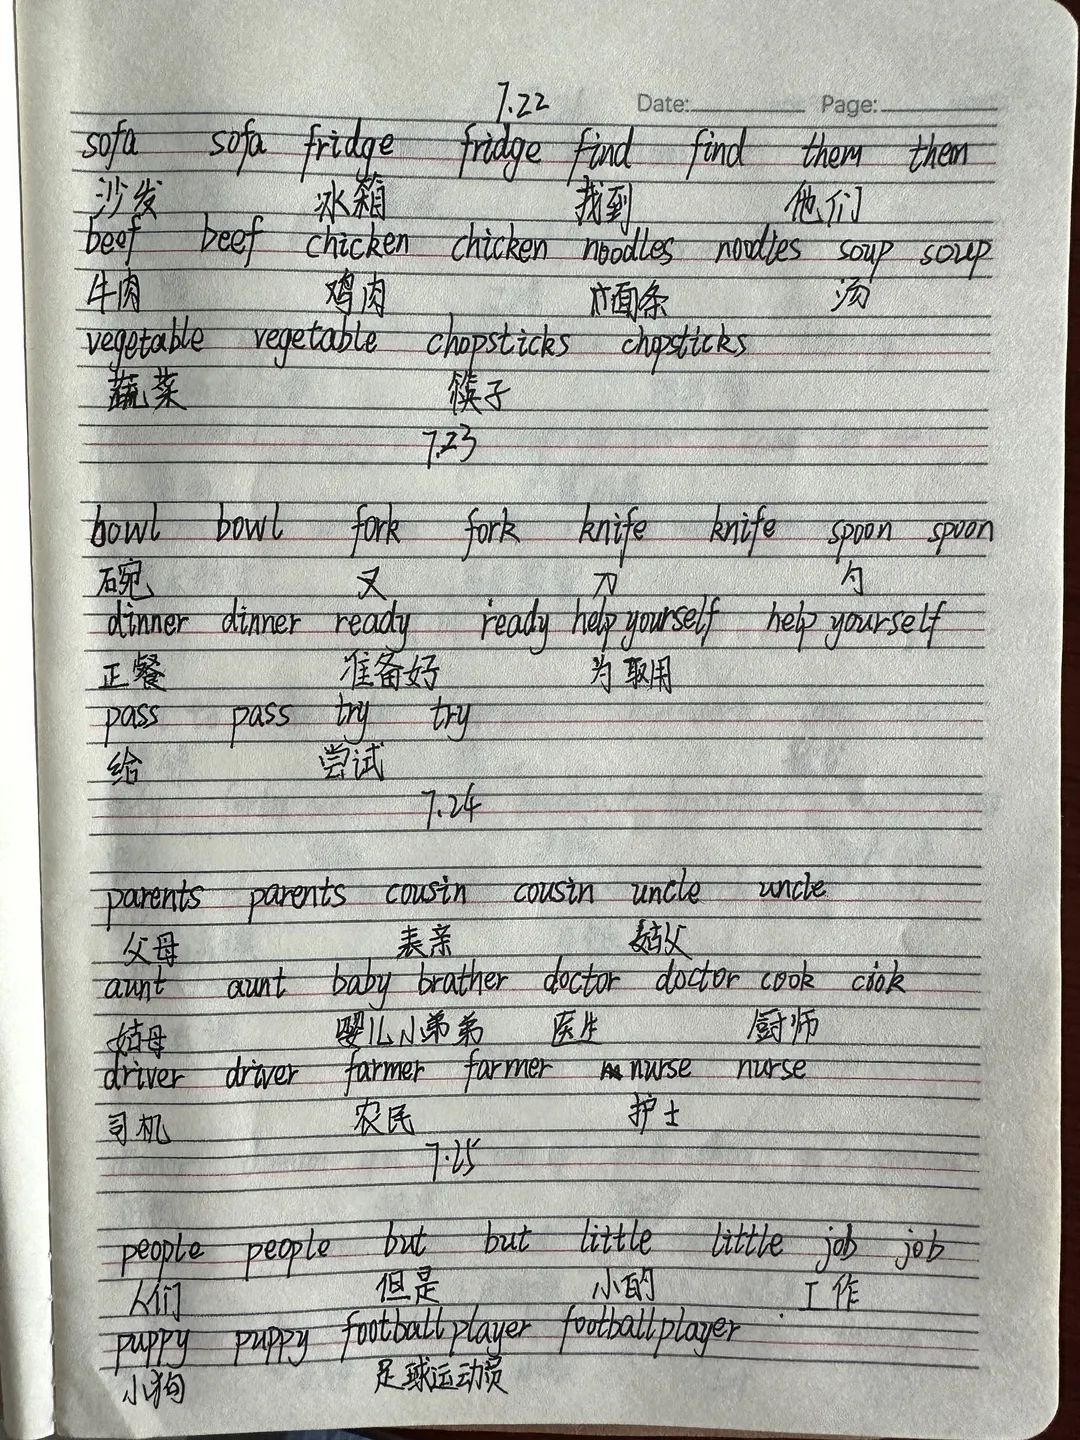 7.22
Date: Page:
sofa sofa fridge fridge find find them them
沙发 冰箱 找到 他们
beef beef chicken chicken noodles noodles soup soup
牛肉 鸡肉 面条 汤
vegetable vegetable chopsticks chopsticks
蔬菜 筷子
7.23
bowl bowl fork fork knife knife spoon spoon
碗 叉 刀 勺
dinner dinner ready ready help yourself help yourself
正餐 准备好 为取用
pass pass try try
给 尝试
7.24
parents parents cousin cousin uncle uncle
父母 表亲 姑父
aunt aunt baby brather doctor doctor cook cook
姑母 婴儿小弟弟 医生 厨师
driver driver farmer farmer nurse nurse
司机 农民 护士
7.25
people people but but little little job job
人们 但是 小的 工作
puppy puppy football player football player
小狗 足球运动员